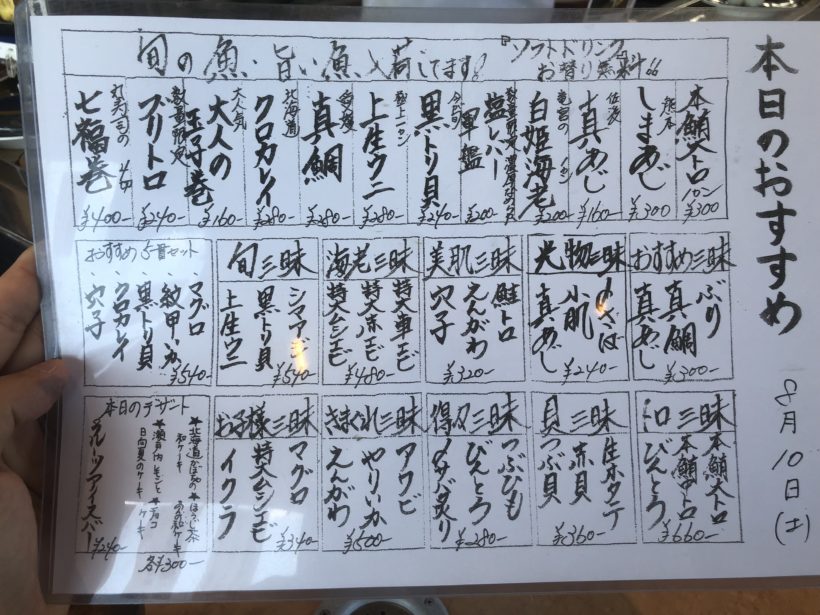 本日のおすすめ
8月10日(土)
旬の魚・旨い魚入荷してます!
『ソフトドリンク』
お替り無料!!
本鮪大トロ
¥300
熊本
しまあじ
¥300
佐渡
真あじ
¥160
白姫海老
¥200
塩レバー
軍艦
¥200
黒トリ貝
¥240
上生ウニ
¥280
愛媛
真鯛
¥280
北海道
クロカレイ
¥280
大人気
大人の
玉子巻
¥160
ブリトロ
¥240
七福巻
¥400
おすすめ三昧
ぶり
真鯛
真あじ
¥300
光物三昧
〆さば
小肌
真あじ
¥240
美肌三昧
鮭トロ
えんがわ
穴子
¥320
海老三昧
特大車エビ
特大赤エビ
特大甘エビ
¥480
旬三昧
シマアジ
黒トリ貝
上生ウニ
¥540
おすすめ5貫セット
マグロ
紋甲いか
黒トリ貝
クロカレイ
穴子
¥540
トロ三昧
本鮪大トロ
本鮪中トロ
びんとろ
¥660
貝三昧
生ホタテ
赤貝
つぶ貝
¥360
得々三昧
つぶひも
びんとろ
〆サバ炙り
¥280
きまぐれ三昧
アワビ
やりいか
えんがわ
¥500
お子様三昧
マグロ
特大甘エビ
イクラ
¥340
本日のデザート
★北海道かぼちゃの
和ケーキ
★ほうじ茶
の和ケーキ
★瀬戸内レモンとチョコ
日向夏のケーキ
各¥300
フルーツアイスバー
¥240